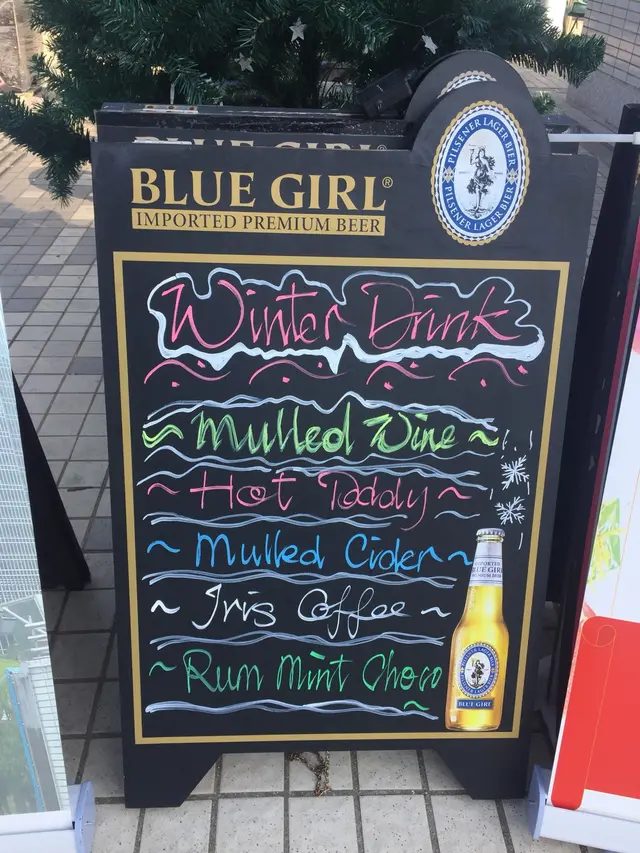 BLUE GIRL
BLUE GIRL®
IMPORTED PREMIUM BEER
PILSENER LAGER BIER
PILSENER LAGER BIER
Winter Drink
~ Mulled Wine ~
~ Hot Toddy ~
~ Mulled Cider ~
~ Iris Coffee ~
~ Rum Mint Choco ~
IMPORTED
BLUE GIRL
BLUE GIRL